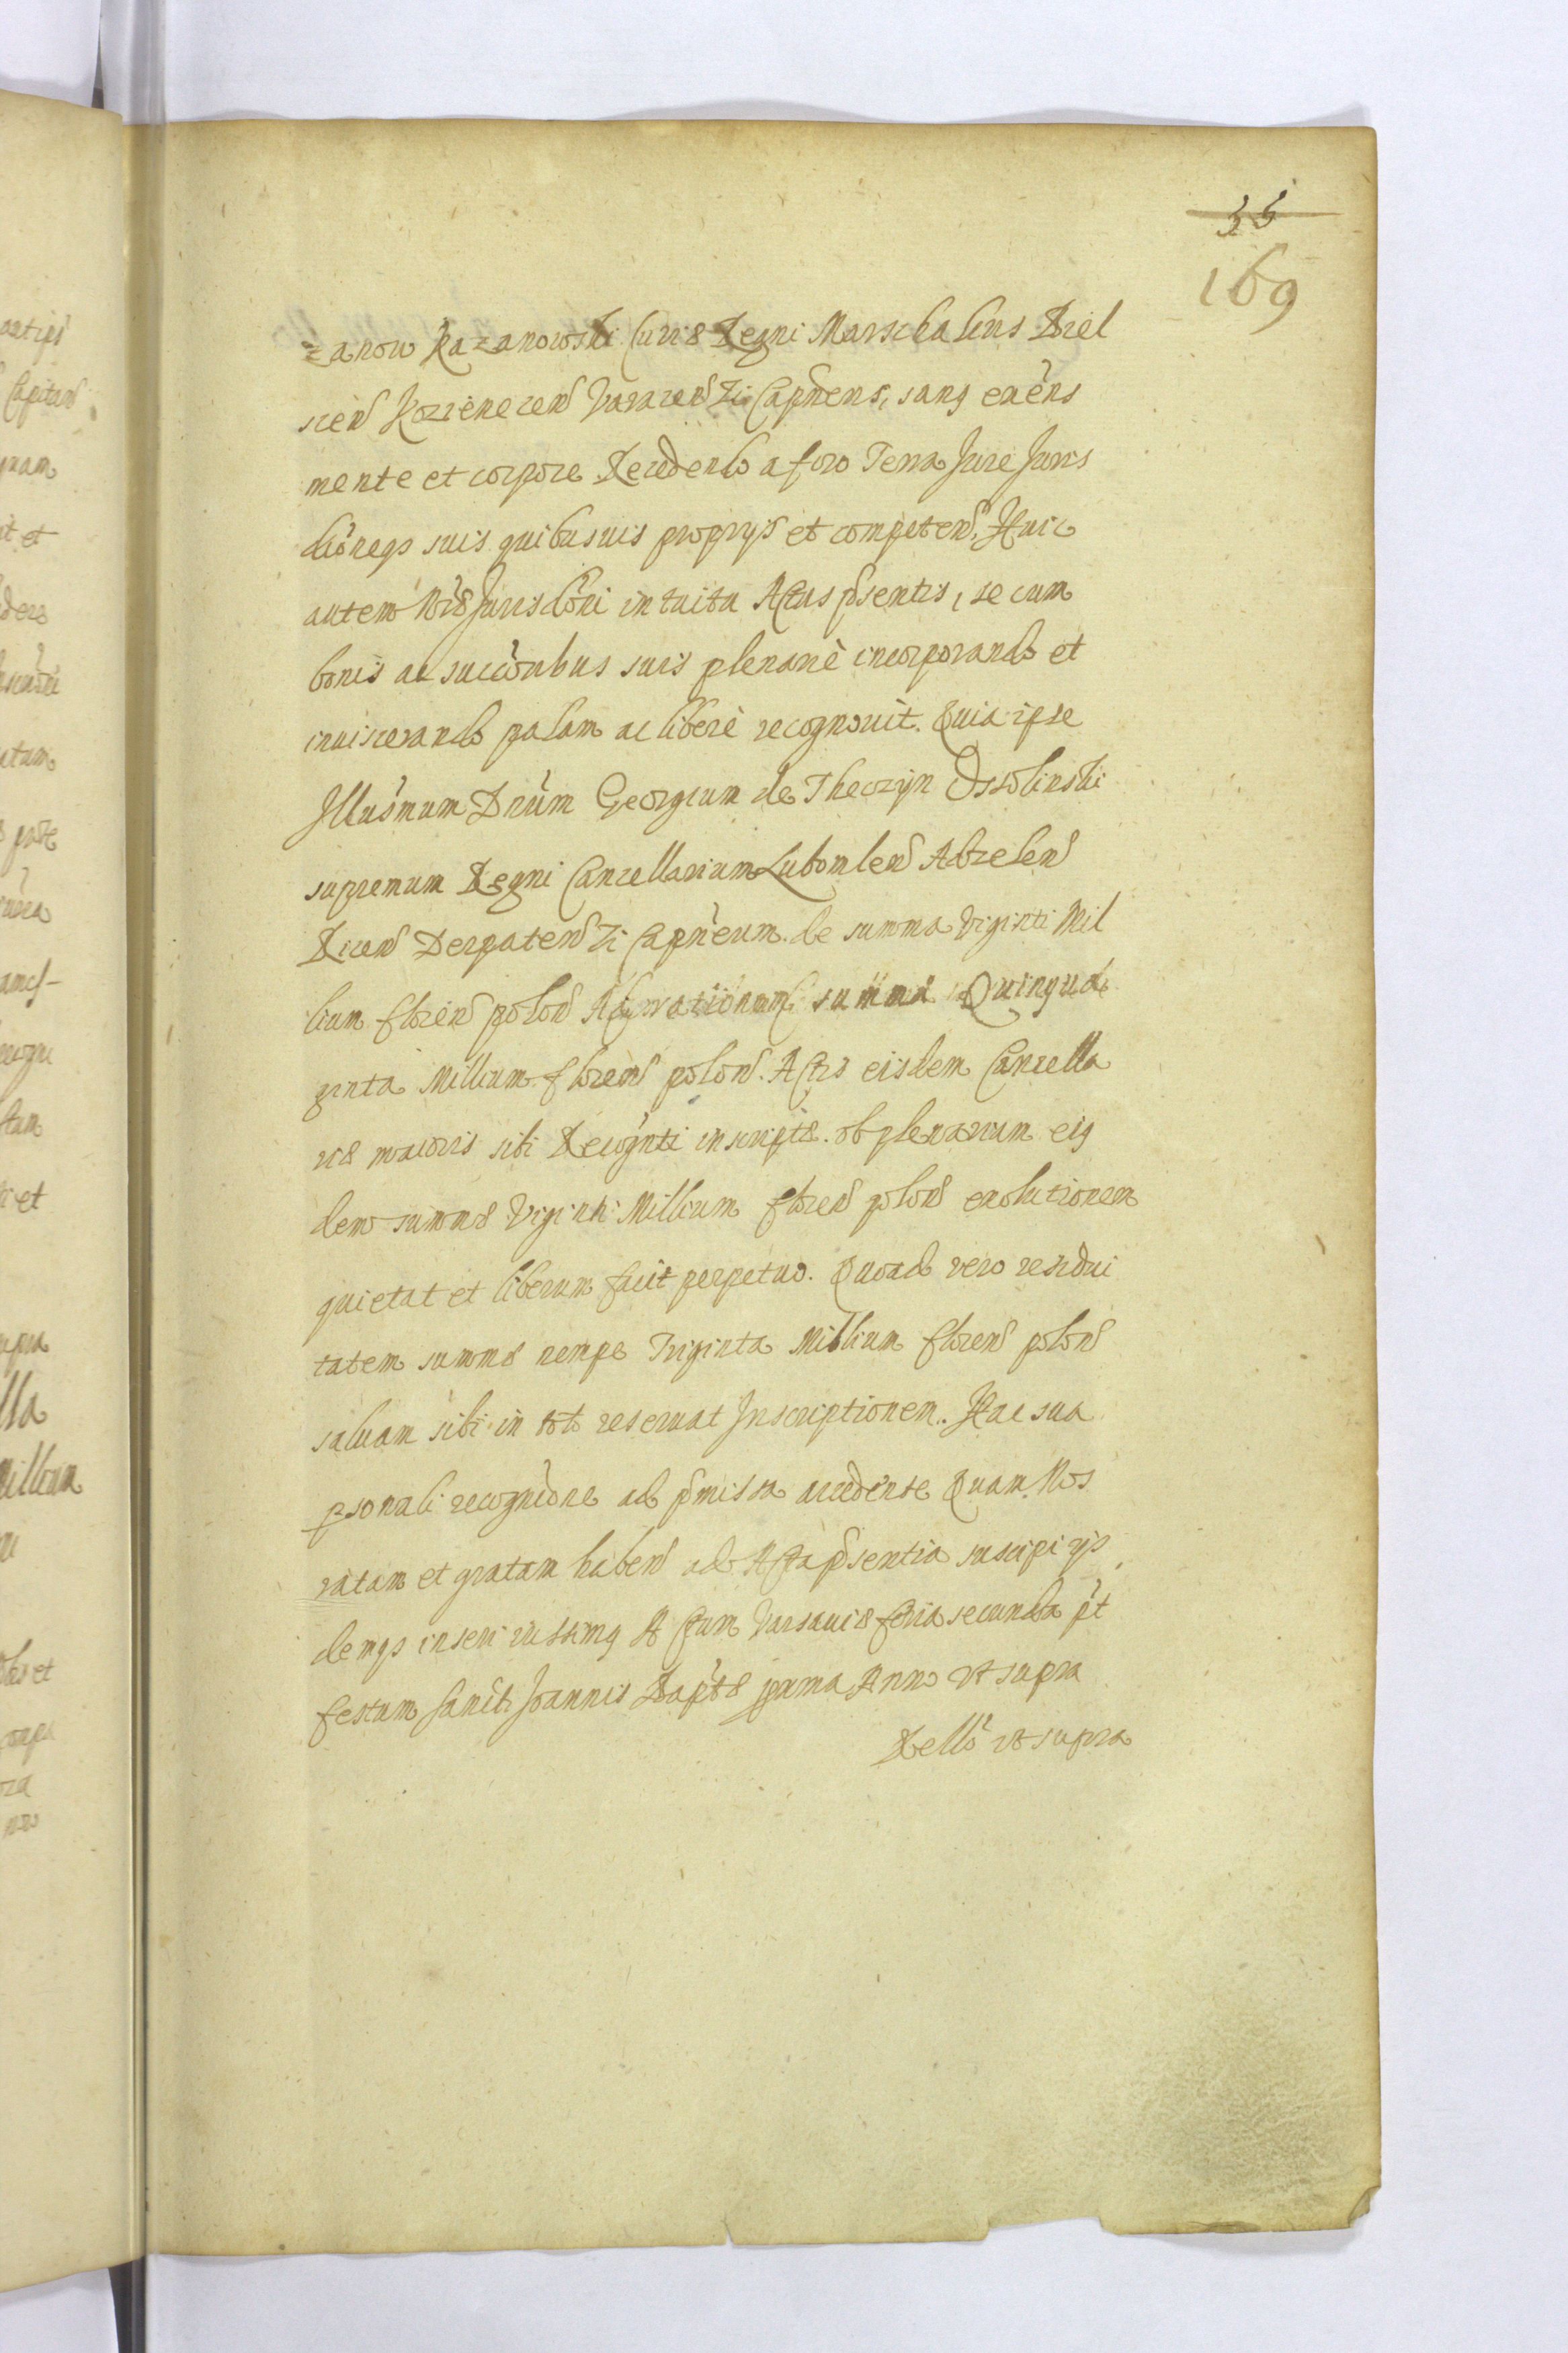 55
169
zanow Kazanowski Curiæ Regni Marschalcus Biel
scen̄ Kozienecen̄ Varacen̄ Zc Capn̄eus, sanq exn̄s
mente et corpore Recedendo a foro Terra Jure Juris
dic̄onēq suis quibusuis proprijs et competen̄, Huic
autem Nr̄æ Jurisdic̄oni intuitu Actus pn̄sentis, se cum
bonis ac succ̄oribus suis plenariè incorporando et
inuiscerando palam ac liberè recognouit. Quia ipse
Illus̄mum Dn̄um Georgium de Theczyn Ossolinski
supremum Regni Cancellarium Lubomlen̄ Adzelen̄
Ricen̄ Derpaten̄ Zc Capn̄eum. de summa Viginti Mil
lium floren̄ polon̄ summa Quinqua
ginta Millium floren̄ polon̄. Actis eisdem Cancella
riæ maioris sibi Recogn̄ti inscriptæ. ob plenarium eiq
dem summæ Viginti Millium floren̄ polon̄ exolutionem
quietat et liberum facit perpetuo. Quoad vero residui
tatem summæ nempe Triginta Millium floren̄ polon̄
saluam sibi in toto reseruat Inscriptionem. Hac sua
psonali recognic̄one ad pmissa accedente Quam Nos
ratam et gratam haben̄ ad Acta pn̄sentia suscipi ijs
demqs inseri iussimq Actum Varsauiæ feria secunda pt̄
festum Sancti Joannis Bapt̄æ prima Anno vt supra
Rell̄o vt supra